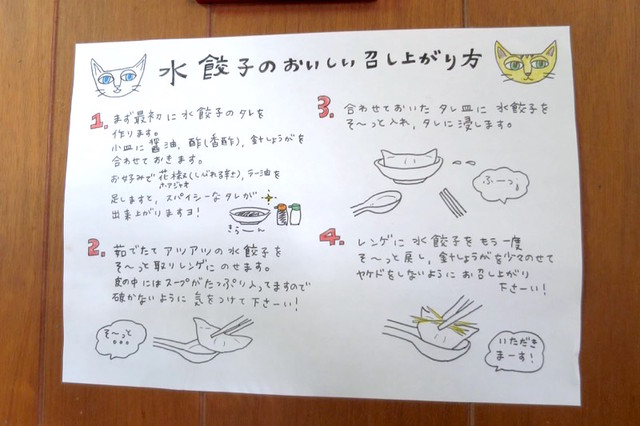 水餃子のおいしい召し上がり方
1. まず最初に水餃子のタレを
作ります。
小皿に醤油,酢(香酢),針しょうがを
合わせておきます。
お好みで花椒(しびれる辛さ),ラー油を
ホアジャオ
足しますと、スパイシーなタレが
出来上がりますヨ!
きらーん
2. 茹でたて アツアツの水餃子を
そ〜っと取りレンゲにのせます。
皮の中にはスープがたっぷり入ってますので
破かないように気をつけて下さーい!
そ〜っと
3. 合わせておいた タレ皿に 水餃子を
そ〜っと入れ,タレに浸します。
ふーっ
4. レンゲに水餃子をもう一度
そ〜っと戻し,針しょうがを少々のせて
ヤケドをしないようにお召し上がり
下さーい!
いただき
まーす!